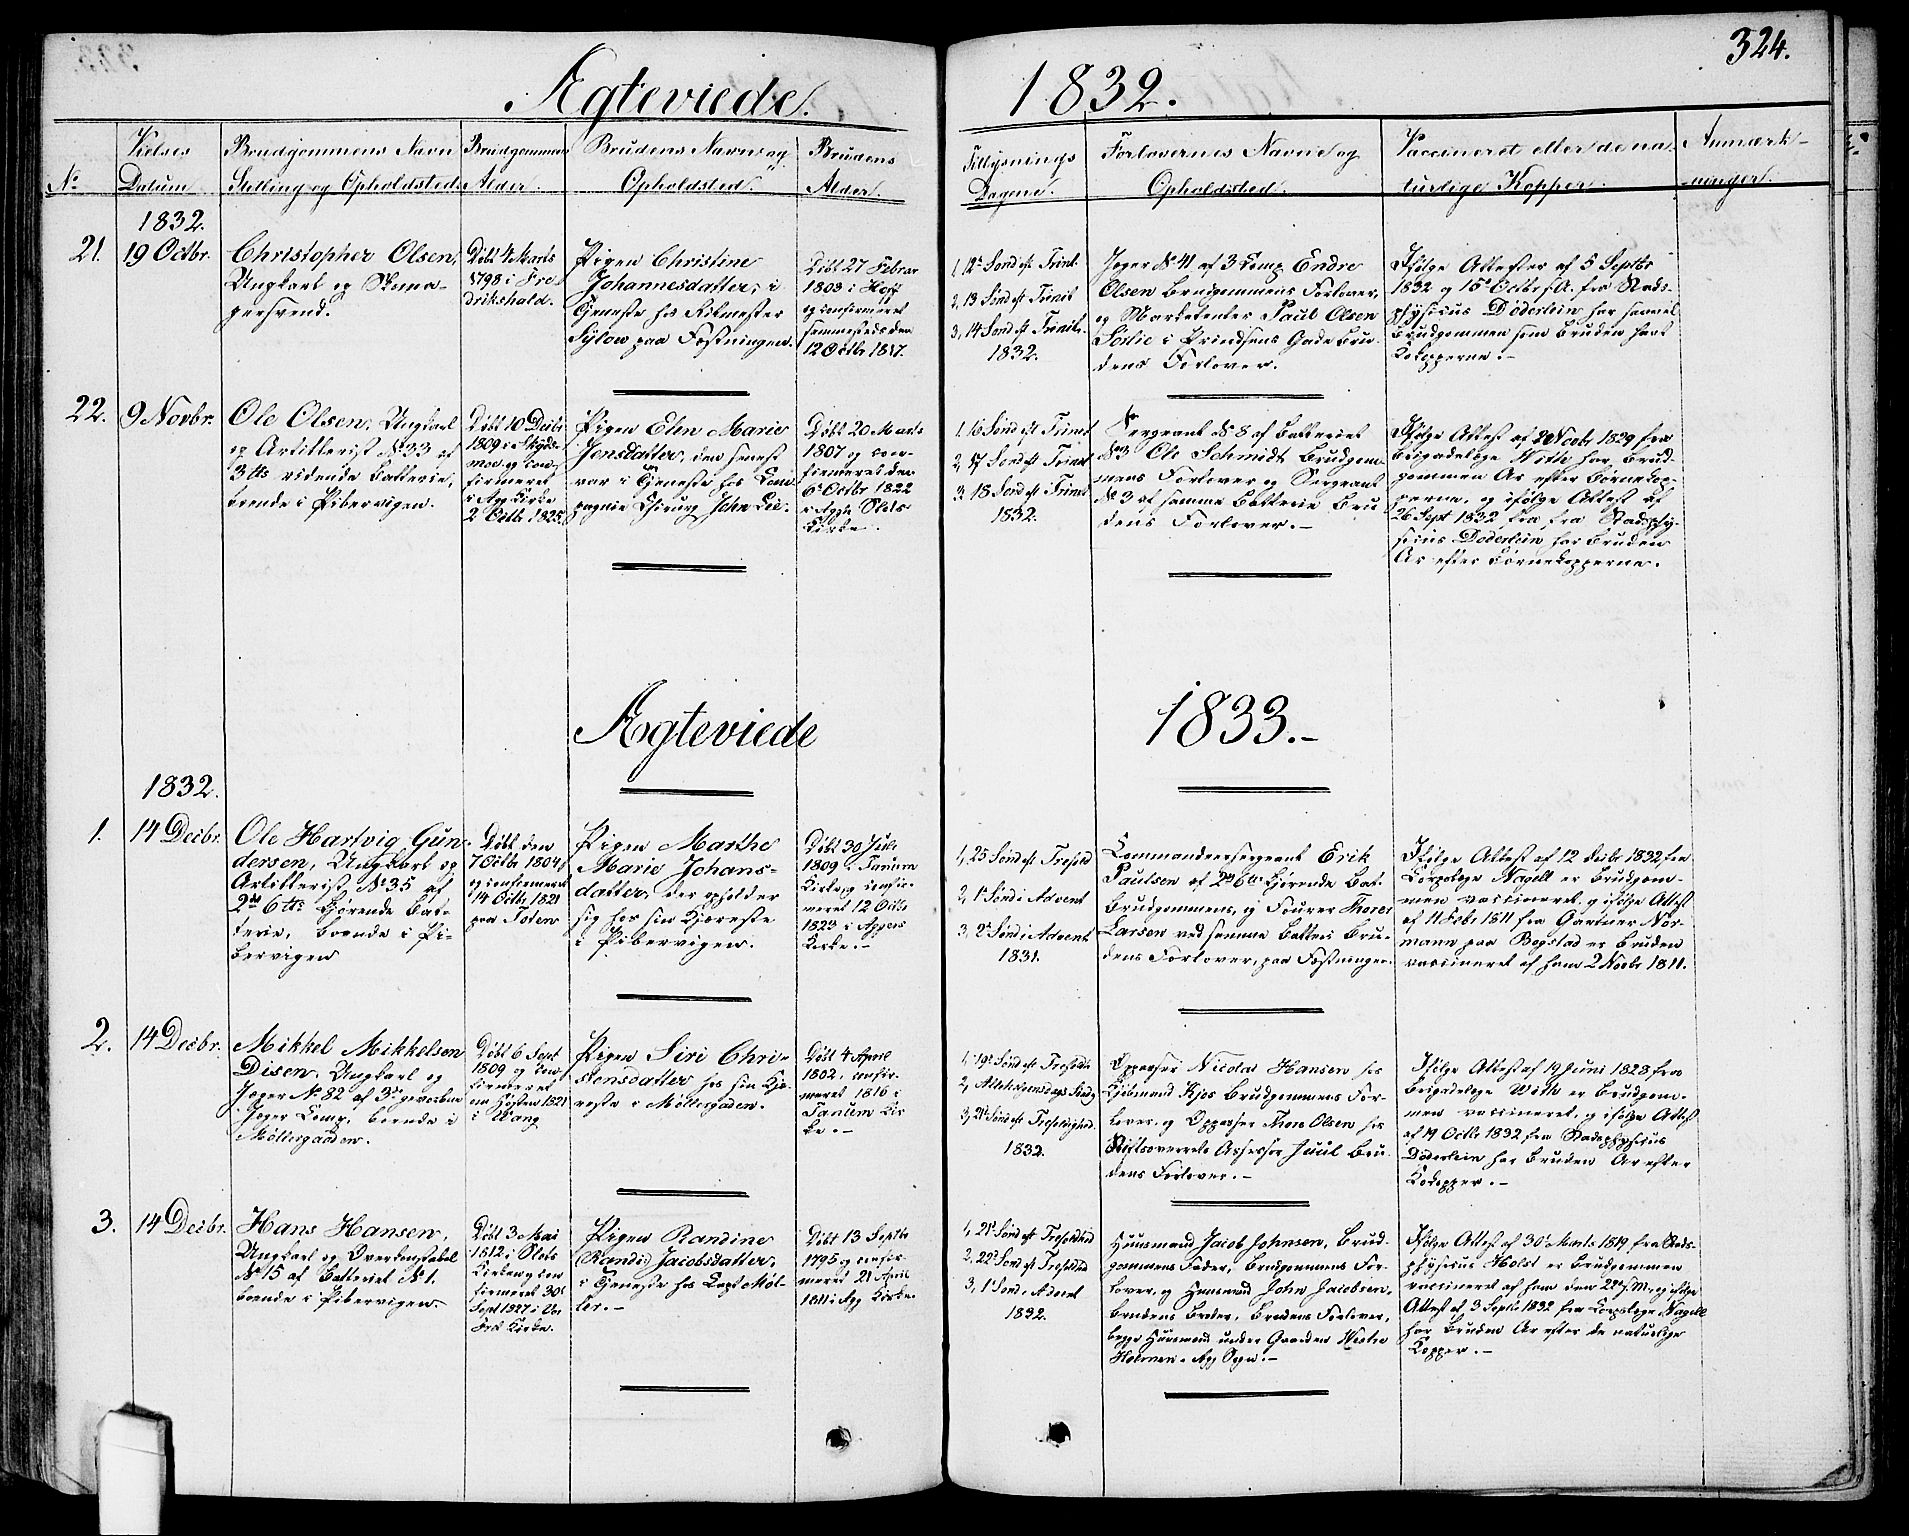 324.
Ægteviede. 1832.
No
Vielses
Datum
Brudgommens Navn
Stilling og Opholdsted
Brudgommens
Alder.
Brudens Navn og
Opholdsted.
Brudens
Alder.
Tillysnings
Dagene.
Forlovernes Navne og
Opholdsted.
Vaccineret eller de na
turlige Kopper.
Anmærk-
ninger.
1832.
21.
19 Octbr.
Christopher Olsen,
Ungkarl og Skoma-
gersvend.
Døbt 4 Marts
1798 i Fre
drikshald.
Pigen Christine
Johannesdatter, i
Tjeneste hos Ritmester
Sylow paa Fæstningen.
Døbt 27 Februar
1803 i Hoff
og confirmeret
sammesteds den
12 Octbr 1817.
1, 12 Sønd eft Trinit.
2, 13 Sønd eft Trinit
3, 14 Sønd eft Trinit.
1832.
Jæger No 41 af 3 Comp. Endre
Olsen Brudgommens Forlover,
og Marketenter Paul Olsen
Sørlie i Prindsens Gade Bru-
dens Forlover.
Ifølge Attester af 5 Septbr
1832 og 15 Octbr s. A. fra Stads-
physicus Döderlein har saavel
Brudgommen som Bruden havt
Kokopperne.-
22.
9 Novbr.
Ole Olsen, Ungkarl
og Artillerist No 33 af
3die ridende Batterie,
boende i Pibervigen.
Døbt 10 Decbr
1809 i Skyds-
moe og con-
firmeret
i Agg Kirke
2 Octbr 1825.
Pigen Elen Marie
Jensdatter, der senest
var i Tjeneste hos Com
pagnie Chirurg John Lie.
Døbt 20 Marts
1807 og con-
firmeret den
6 Octbr 1822
i Aggh. Slots
Kirke.
1. 16 Sønd eft Trinit
2, 17 Sønd eft Trinit
3. 18 Sønd eft Trinit
1832.
Sergeant No 8 af Batteriet
No 3 Ole Schmidt Brudgom-
mens Forlover og Sergeant
No 3 af samme Batterie Bru
dens Forlover.-
Ifølge Attest af 2 Novbr 1829 fra
Brigadelæge With har Brud-
gommen Ar efter Børnekop-
perne, og ifølge Attest af
26 Sept 1832 fra fra Stadsphy-
sicus Döderlein har Bruden
Ar efter Børnekopperne.
Ægteviede 1833.-
1832.
1.
14 Decbr.
Ole Hartvig Gun-
dersen, Ungkarl og
Artillerist No 35 af
2det 6 ttr Kjørende Bat-
terie, boende i Pi-
bervigen
Døbt den
7 Octbr 1804
og confirmeret
14 Octbr 1821
paa Toten
Pigen Marthe
Marie Johans-
datter, der opholder
sig hos sin Kjæreste
i Pibervigen.
Døbt 30 Juli
1809 i Tanum
Kirke, og confir-
meret 12 Octbr
1823 i Aggers
Kirke.-
1, 25 Sønd eft Trefold
2, 1 Sønd i Advent
3, 2 Sønd i Advent
1831.
Commandeersergeant Erik
Paulsen af 2det 6 ttr Kjørende Bat-
Brudgommens, og Fourer Thorer
Larsen ved samme Batterie Bru-
dens Forlover, paa Fæstningen.
Ifølge Attest af 12 Decbr 1832, fra
Corpslæge Nagell er Brudgom-
men vaccineret og ifølge Attest
af 11 Febr 1811 fra Gartner Nor-
mann paa Bogstad er Bruden
vaccineret af ham 2 Novbr 1811.
2.
14 Decbr.
Mikkel Mikkelsen
Disen, Ungkarl og
Jæger No. 82 af 3die gevorbne
Jæger Comp, boende i
Møllergaden.
Døbt 6 Sept
1809 og con-
firmeret
om Høsten 1821
i Vang
Pigen Siri Chri-
stensdatter hos sin Kjæ-
reste i Møllergaden.
Døbt 4 April
1802, confir-
meret 1816 i
Tanum Kir
ke.-
1, 19 Sønd eft Trefoldh
2, Allehelgensdags Sønd
3, 21 Sønd eft Trefoldighed.
1832.
Oppasser Nicolai Hansen hos
Kjøbmand Kjos Brudgommens For-
lover, og Oppasser Thore Olsen hos
Stiftsoverrets Assessor Juul Bru-
dens Forlover.-
Ifølge Attest af 19 Juni 1828 fra
Brigadelæge With er Brudgom-
men vaccineret, og ifølge Attest
af 19 Octbr 1832 fra Stadsphysicus
Döderlein har Bruden Ar efter
Kokopper.-
3.
14 Decbr.
Hans Hansen,
Ungkarl og Overkonstabel
No 15 af Batteriet No 1.
boende i Pibervigen.
Døbt 3 Mai
1812 i Slots
Kirken og con
firmeret 30
Sept 1827 i Vor
Frs Kirke.
Pigen Randine
(Randi) Jacobsdatter,
i Tjeneste hos Capt Møl-
ler.-
Døbt 13 Septbr
1795 og confir-
meret 21 April
1811 i Agg Kirke.
1, 21 Sønd eft Trefoldhed
2. 22 Sønd eft Trefoldhed
3, 1 Sønd i Advent
1832.
Huusmand Jacob Johnsen, Brud-
gommens Fader, Brudgommens For-
lover, og Huusmand John Jacobsen,
Brudens Broder, Brudens Forlover,
begge Huusmænd under Gaarden Westre
Holmen i Agg Sogn.-
Ifølge Attest af 30 Marts 1819 fra Stads-
physicus Holst er Brudgommen
vaccineret af ham den 22 s. M., og ifølge
Attest af 3 Septbr 1832 fra Corpslæge Nagell
har Bruden Ar efter de naturlige
Kopper.-